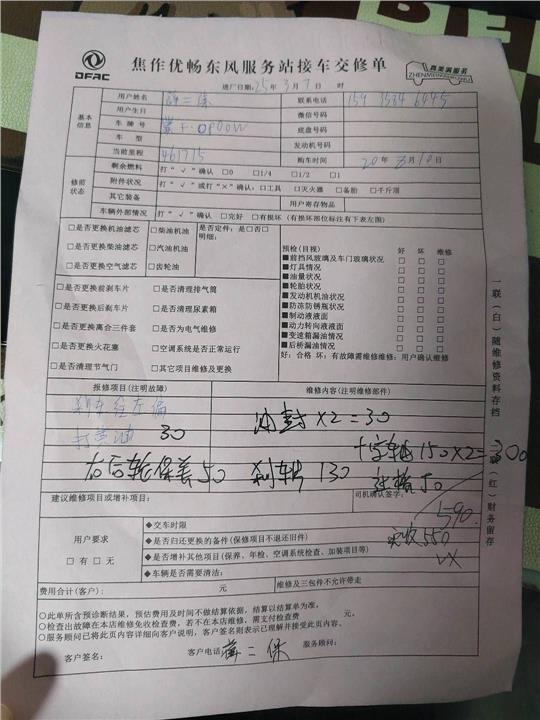 DFAC
焦作优畅东风服务站接车交修单
真美满服务
ZHENMEIMANFUWU
进厂日期:25年3月7日 时
基本信息
用户姓名 二保 联系电话
用户生日 微信号码
车牌号 底盘号码
车型 发动机号码
当前里程 461715 购车时间 20年3月10日
修前状态
剩余燃料 打“√”确认 □0 □1/4 □1/2 □1
附件状况 打“√”或打“×”确认:□工具 □灭火器 □备胎 □千斤顶
其它装备 用户寄存物品
车辆外部情况 打“√”确认 □完好 □有损坏(有损坏部位标注有下表左图)
□是否更换机油滤芯 □柴油机油 是否定件:是□否□
□是否更换柴油滤芯 □汽油机油 明细:
□是否更换空气滤芯 □齿轮油
□是否更换前刹车片 □是否清理排气筒
□是否更换后刹车片 □是否清理尿素箱
□是否更换离合三件套 □是否为电气维修
□是否更换火花塞 □空调系统是否正常运行
□是否清理节气门 □其它项目维修及更换
预检(目视) 好 坏 维修
■前挡风玻璃及车门玻璃状况 □ □ □
■灯具情况 □ □ □
■油量状况 □ □ □
■轮胎状况 □ □ □
■发动机机油状况 □ □ □
■防冻防锈瓶状况 □ □ □
■制动液液面 □ □ □
■动力转向液液面 □ □ □
■变速箱漏油情况 □ □ □
■后桥漏油情况 □ □ □
好:合格 坏:有故障需维修维修:用户确认维修
报修项目(注明故障) 维修内容(注明维修部件)
刹车往左偏 油封X2=30
打黄油 30 十字轴150X2=300
右后轮保养50 刹车片130
50
建议维修项目或增补项目: 司机确认签字:
590
实收550
VX
用户要求
□有 □无
◆交车时限
◆是否归还更换的备件(保修项目不退还旧件)
◆是否增补其他项目(保养、年检、空调系统检查、加装项目等)
◆车辆是否需要清洁:
费用合计(客户): 元 维修及三包件不允许带走
○此单所含预诊断结果,预估费用及时间不做结算依据,结算以结算单为准。
○检查出故障在本店维修免收检查费,若不在本店维修,需支付检查费 元。
○服务顾问已将此页内容详细向客户说明,客户签名则表示已理解并接受此页内容。
客户签名: 客户电话: 二保 服务顾问:
一联(白)随维修资料存档
联(红)财务留存